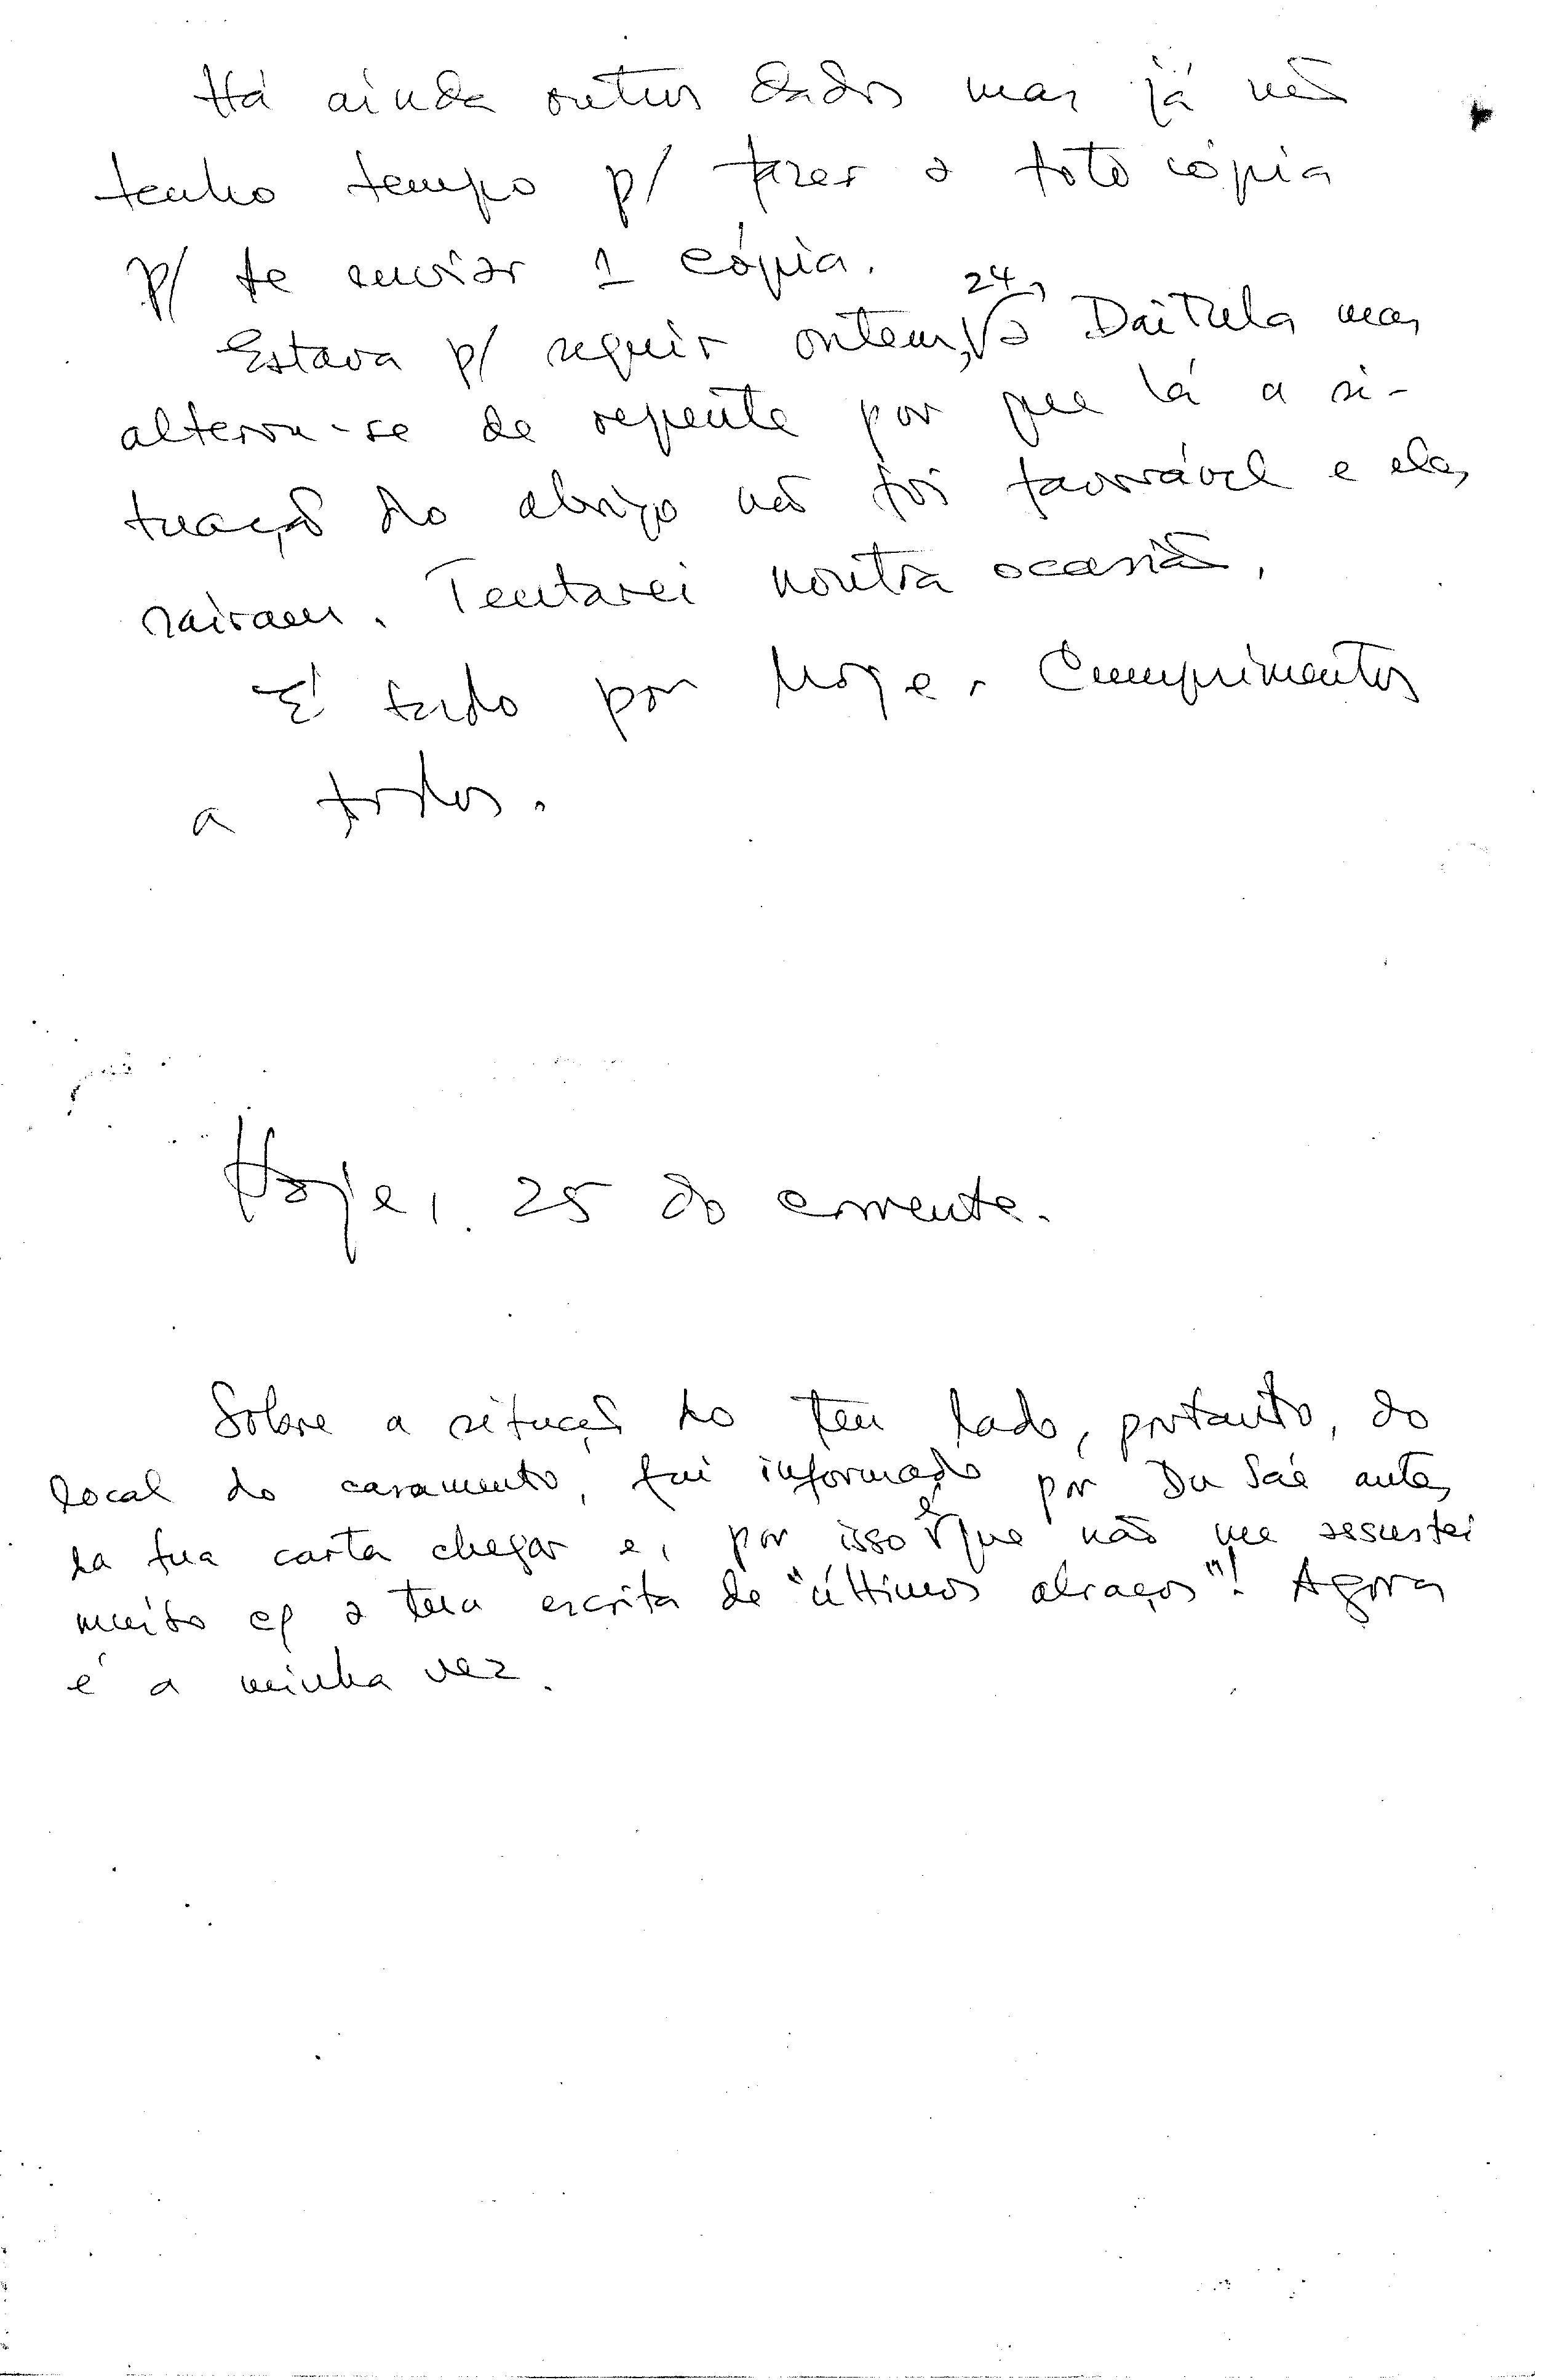 Há ainda outros dados mas já não
tenho tempo p/ fazer a fotocópia
p/ te enviar 1 cópia.
Estava p/ seguir ontem, 24, a Daitula mas
alterou-se de repente por que lá a si-
tuação do abrigo não foi favorável e eles
sairam. Tentarei noutra ocasião.
É tudo por hoje. Cumprimentos
a todos.
Hoje, 25 do corrente.
Sobre a situação do teu lado, portanto, do
local do casamento, fui informado por Du Saé antes
da tua carta chegar e, por isso é que não me assustei
muito c/ a tua escrita de "últimos abraços"! Agora
é a minha vez.